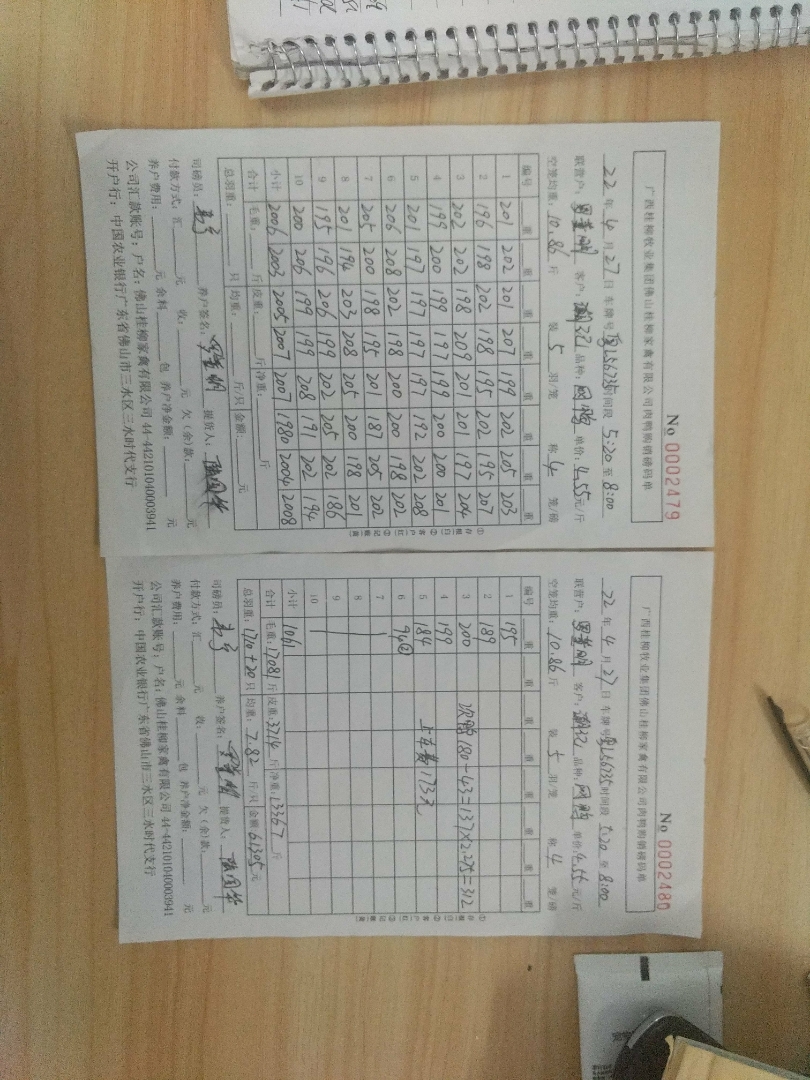 No 0002479
广西桂柳牧业集团佛山桂柳家禽有限公司肉鸭购销磅码单
22 年 4 月 27 日 车牌号 56735 时间段 5:20 至 8:00
联营户: 客户: 品种: 单价: 4.55 元/斤
空笼均重: 10.86 斤 装 5 羽/笼 称 4 笼/磅
编号 重 重 重 重 重 重 重 重
1 201 202 201 207 199 202 205 203
2 196 198 202 198 195 202 195 207
3 202 202 198 209 201 201 197 204
4 199 200 199 197 199 200 200 201
5 201 197 197 197 197 192 202 208
6 206 208 202 198 200 200 198 202
7 205 200 198 195 201 187 205 202
8 201 194 203 208 205 200 198 201
9 195 196 206 199 202 205 202 186
10 200 206 199 199 208 191 202 194
小计 2006 2003 2005 2007 2007 1980 2004 2008
合计 毛重: 斤 皮重: 斤 净重: 斤
总羽重: 只 均重: 斤/只 金额: 元
司磅员: 养户签名: 提货人:
付款方式: 汇 元 收: 元 欠(余)款: 元
养户费用: 元 余料 包 养户净金额: 元
公司汇款账号: 户名: 佛山桂柳家禽有限公司 44-442101040003941
开户行: 中国农业银行广东省佛山市三水区三水时代支行
No 0002480
广西桂柳牧业集团佛山桂柳家禽有限公司肉鸭购销磅码单
22 年 4 月 27 日 车牌号 56735 时间段 5:20 至 8:00
联营户: 客户: 品种: 单价: 4.55 元/斤
空笼均重: 10.86 斤 装 5 羽/笼 称 4 笼/磅
编号 重 重 重 重 重 重 重 重
1 195
2 189
3 200 次鸭 180-43=137×2.275=312
4 199
5 184 上车费 173元
6 94②
7
8
9
10
小计 1061
合计 毛重: 17081 斤 皮重: 3714 斤 净重: 13367 斤
总羽重: 1710+20 只 均重: 7.82 斤/只 金额 61305 元
司磅员: 养户签名: 提货人:
付款方式: 汇 元 收: 元 欠(余)款: 元
养户费用: 元 余料 包 养户净金额: 元
公司汇款账号: 户名: 佛山桂柳家禽有限公司 44-442101040003941
开户行: 中国农业银行广东省佛山市三水区三水时代支行